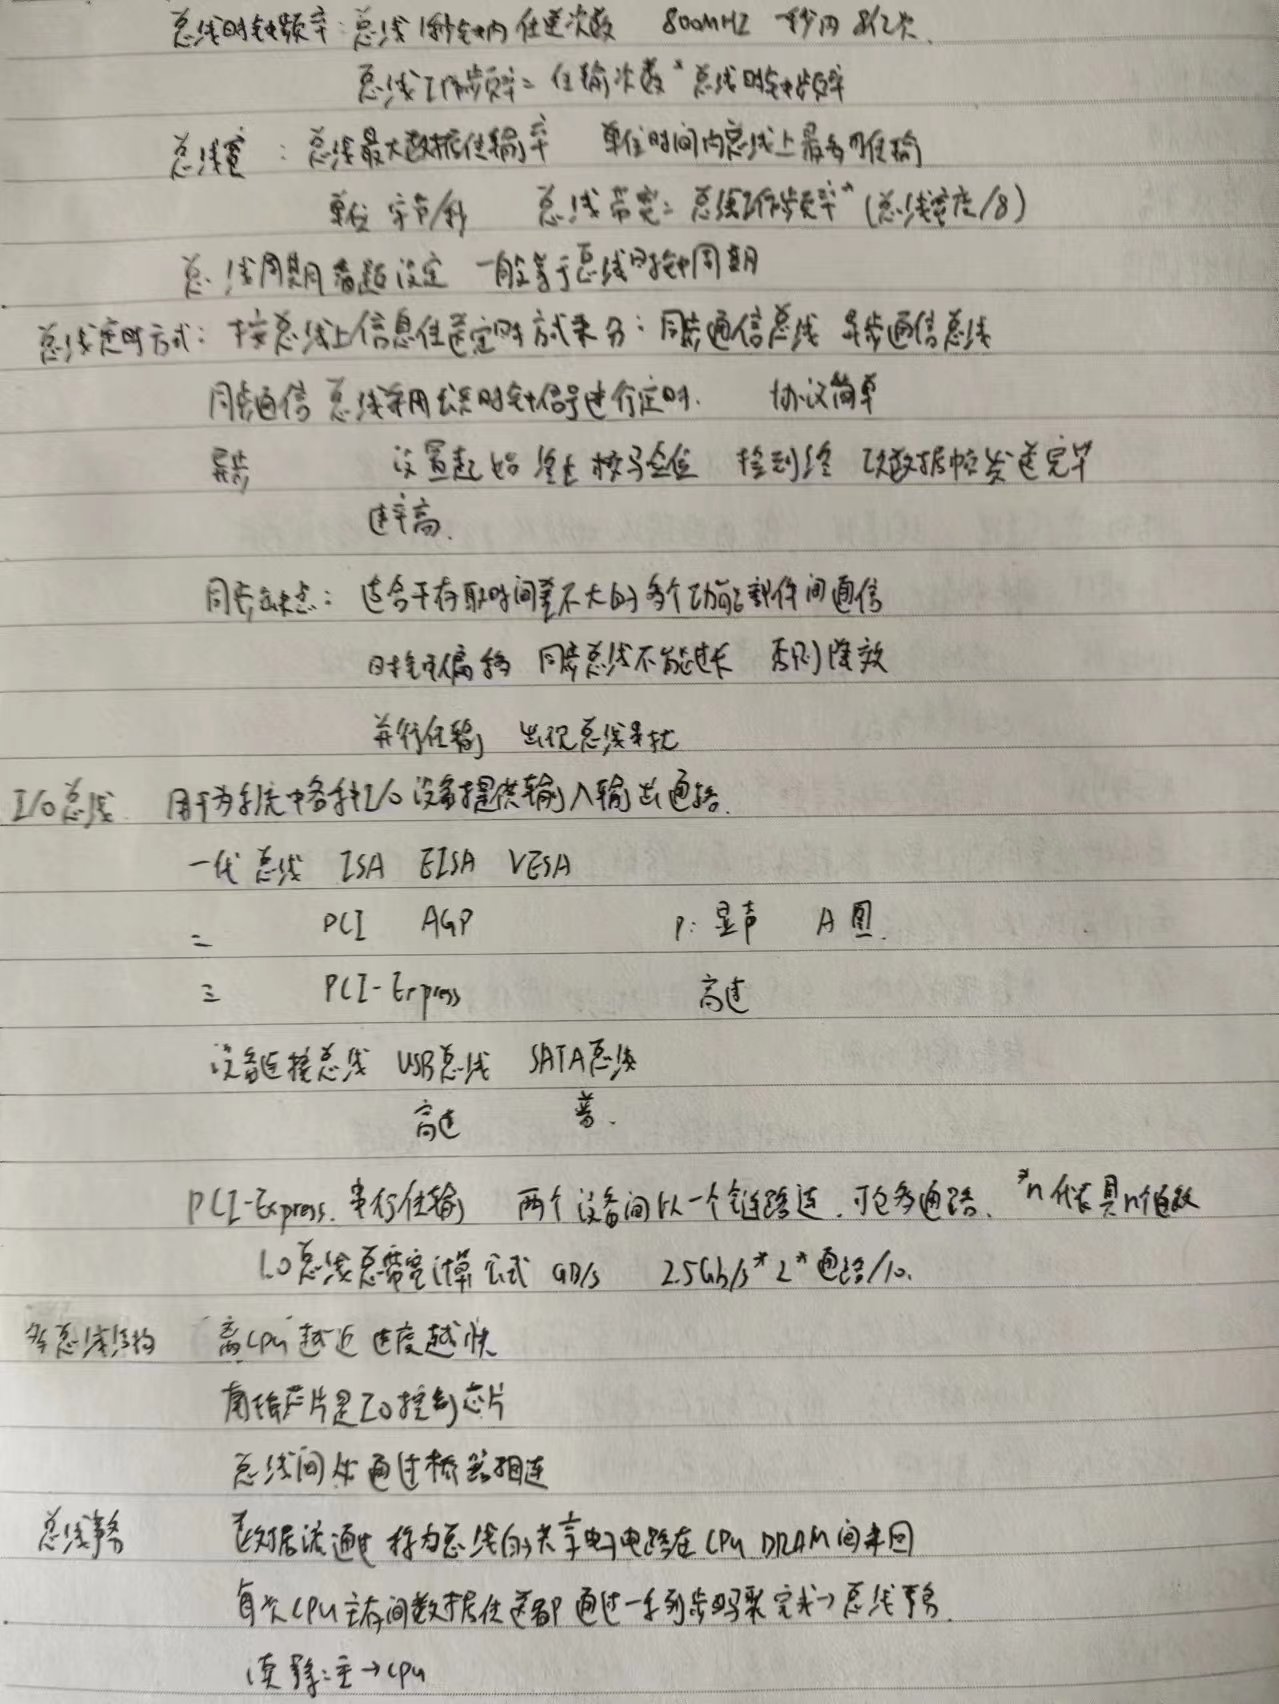 总线时钟频率：总线1秒钟内传送次数 800MHZ 一秒内 8亿次.
总线工作频率= 传输次数*总线时钟频率
总线宽 ：总线最大数据传输率 单位时间内总线上最多可传输
单位 字节/秒 总线带宽= 总线工作频率*(总线宽度/8)
总线周期 设定 一般等于总线时钟周期
总线定时方式：按总线上信息传送定时方式来分：同步通信总线 异步通信总线
同步通信 总线采用公共时钟信号进行定时. 协议简单
异步 设置起始 终止 校验位 检到终 以数据帧发送完毕
速率高.
同步缺点：适合于存取时间差不大的多个功能部件间通信
时钟偏移 同步总线不能过长 否则降效
并行传输 出现总线串扰
I/O总线 用于为系统中各种I/O设备提供输入输出通路.
一代总线 ISA EISA VESA
二 PCI AGP P：显声 A 图.
三 PCI-Express 高速
设备连接总线 USB总线 SATA总线
高速 普.
PCI-Express. 串行传输 两个设备间以一个链路连.可包多通路. *n 代表具n个通路
1.0总线总带宽计算公式 GB/s 2.5Gb/s*2*通路/10.
多总线结构 离CPU越近 速度越快
南桥芯片是IO控制芯片
总线间 通过桥器相连
总线事务 数据流通过称为总线的共享电子电路在CPU DRAM间来回
每次CPU主存间数据传送都通过一系列步骤来完成→总线事务.
读事务：主→CPU